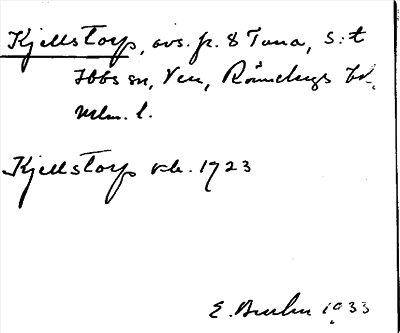 Kjellstorp, avs. fr. 8 Tuna, S:t
Ibbs sn, Ven, Rönnebergs hd,
Mlm. l.
Kjellstorp 1723
E. 1933